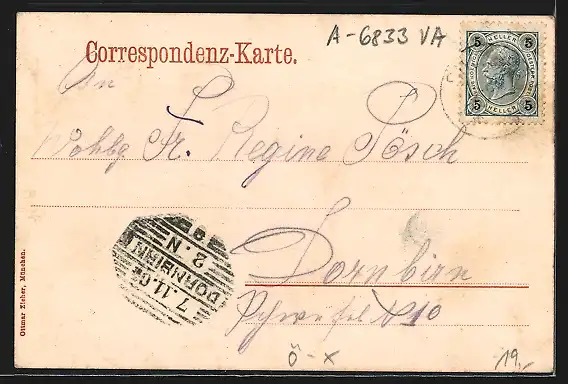 A-6833 VA
Correspondenz-Karte.
An
5 HELLER 5
5 HELLER 5
Wohlg Fr. Regina Pösch
Dornbirn
DORNBIRN
7.11.0
2. N
Ottmar Zieher, München.
No 10
Ö-x
19,-